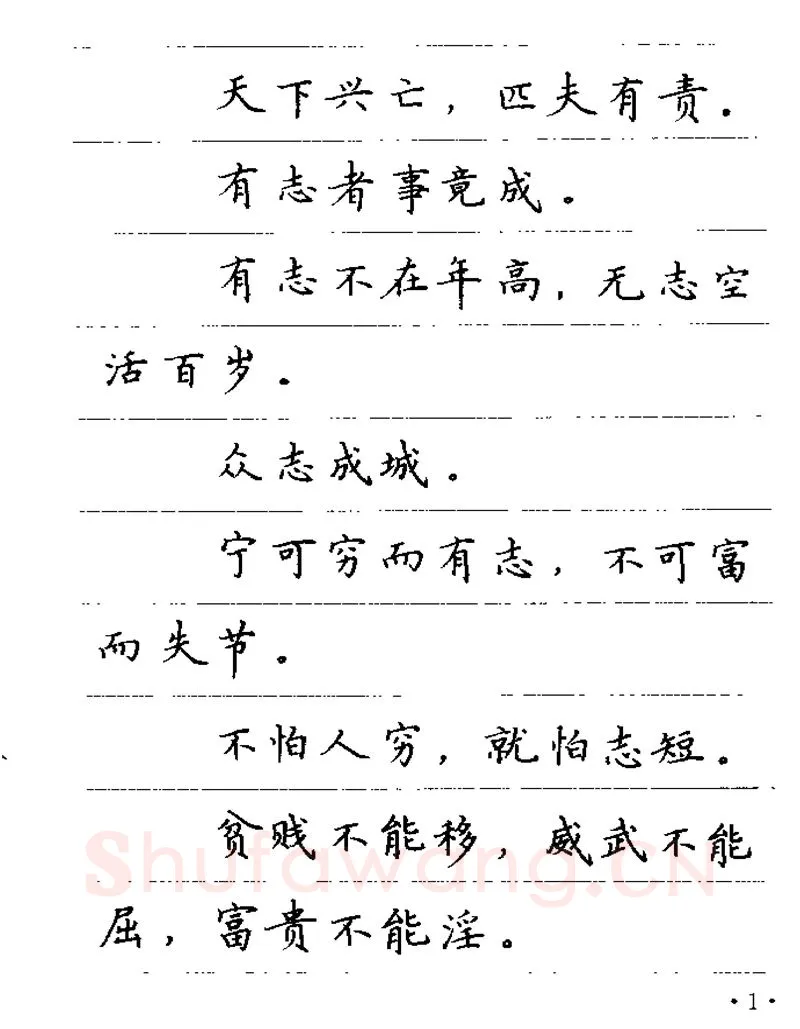 天下兴亡，匹夫有责．
有志者事竟成。
有志不在年高，无志空
活百岁．
众志成城。
宁可穷而有志，不可富
而失节。
不怕人穷，就怕志短。
贫贱不能移，威武不能
Shufawang.CN
屈，富贵不能淫。
·1·